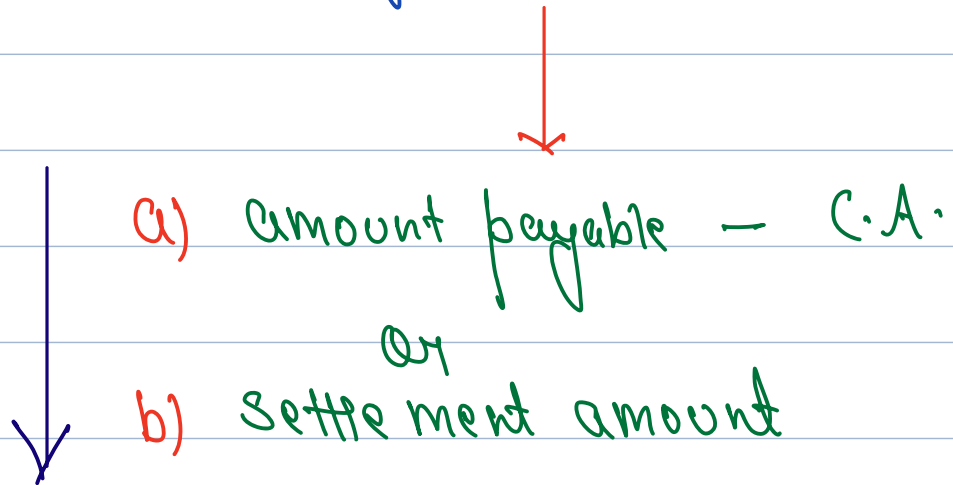 a) amount payable — C.A.
or
b) settlement amount